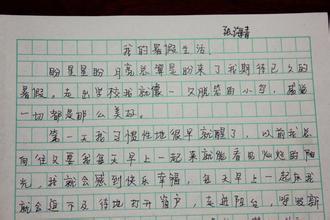 张海青
我的暑假生活
盼星星盼月亮总算是盼来了我期待已久的
暑假。走出学校我就像一只脱笼的小鸟，感觉
一切都是那么美好。
第一天我习惯性地很早就醒了，以前我总
向往只要我每天早上一起来就能看见灿烂的阳
光，我就会感到快乐幸福，每天早上一起床我
就会迫不及待地打开窗户，走进阳台，呼吸新